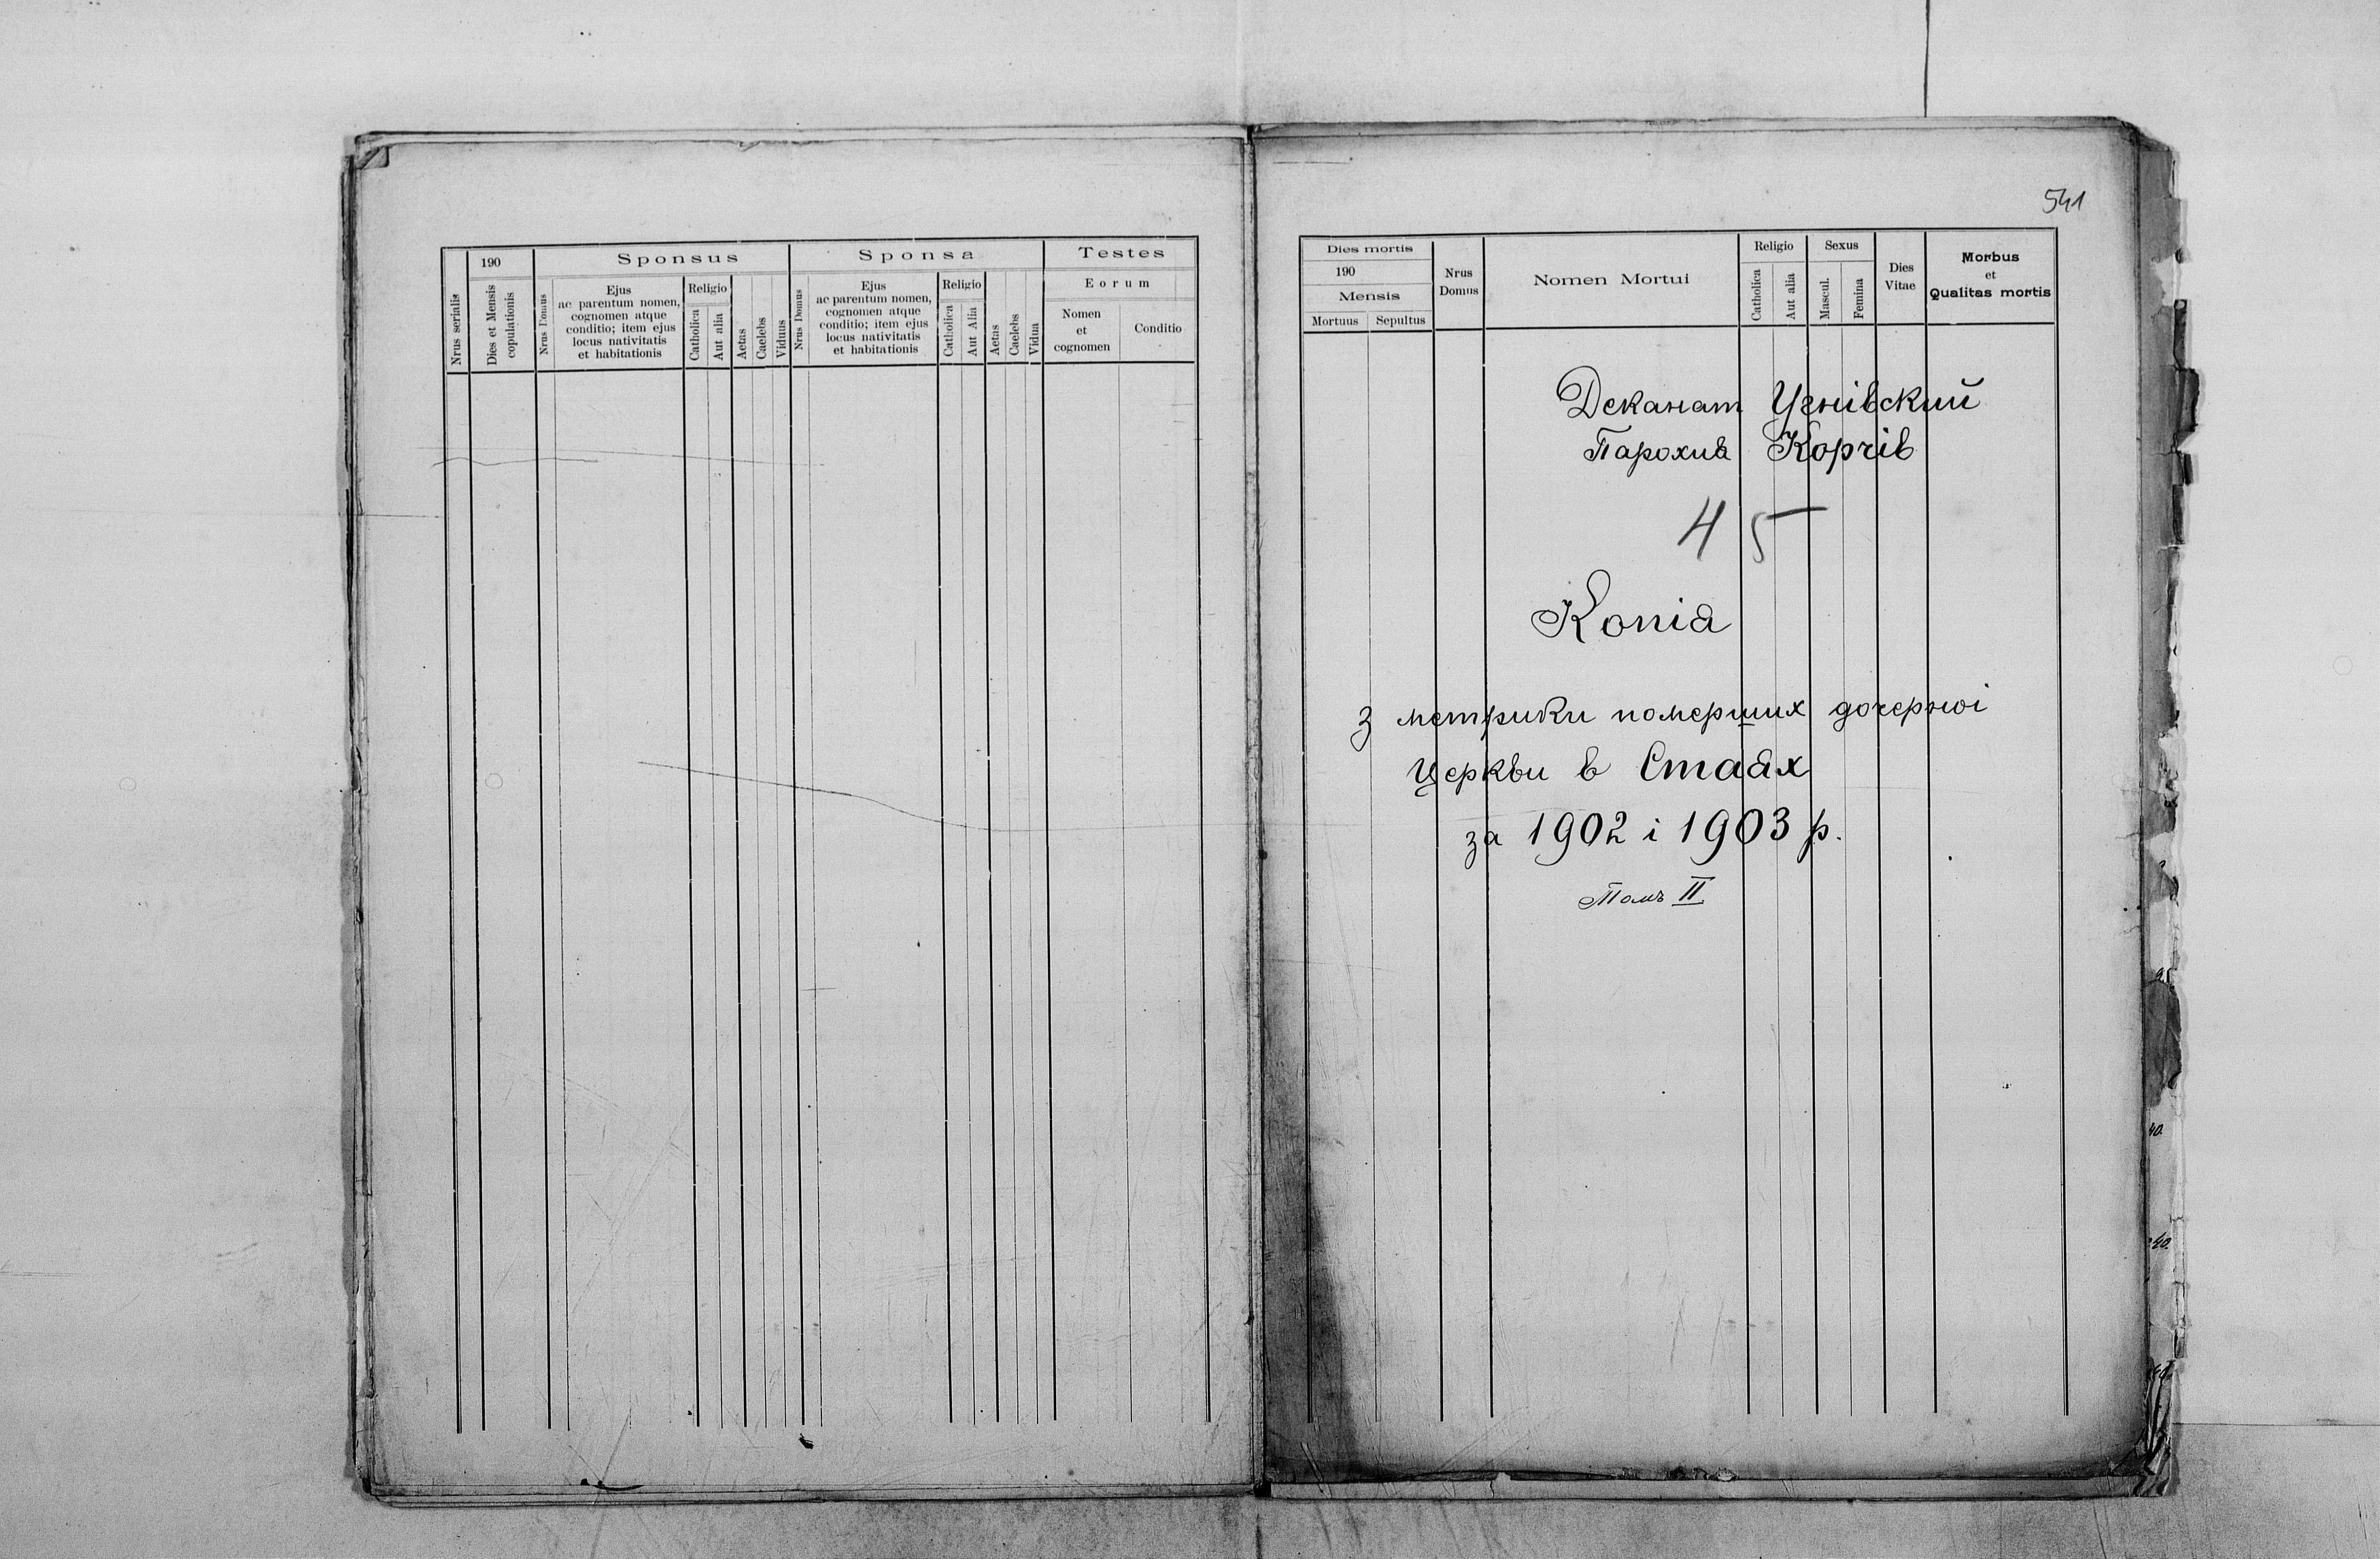 Nrus serialis
190
Dies et Mensis copulationis
Sponsus
Nrus Domus
Ejus
ac parentum nomen,
cognomen atque
conditio; item ejus
locus nativitatis
et habitationis
Religio
Catholica
Aut alia
Aetas
Caelebs
Viduus
Sponsa
Nrus Domus
Ejus
ac parentum nomen,
cognomen atque
conditio; item ejus
locus nativitatis
et habitationis
Religio
Catholica
Aut Alia
Aetas
Caelebs
Vidua
Testes
Eorum
Nomen
et
cognomen
Conditio
541
Dies mortis
190
Mensis
Mortuus Sepultus
Nrus
Domus
Nomen Mortui
Religio
Catholica
Aut alia
Sexus
Mascul.
Femina
Dies
Vitae
Morbus
et
Qualitas mortis
Деканат Угнівский
Парохия Корчів
45
Копія
з метрики померших дочерної
церкви в Стаях
за 1902 і 1903 р.
Томъ II